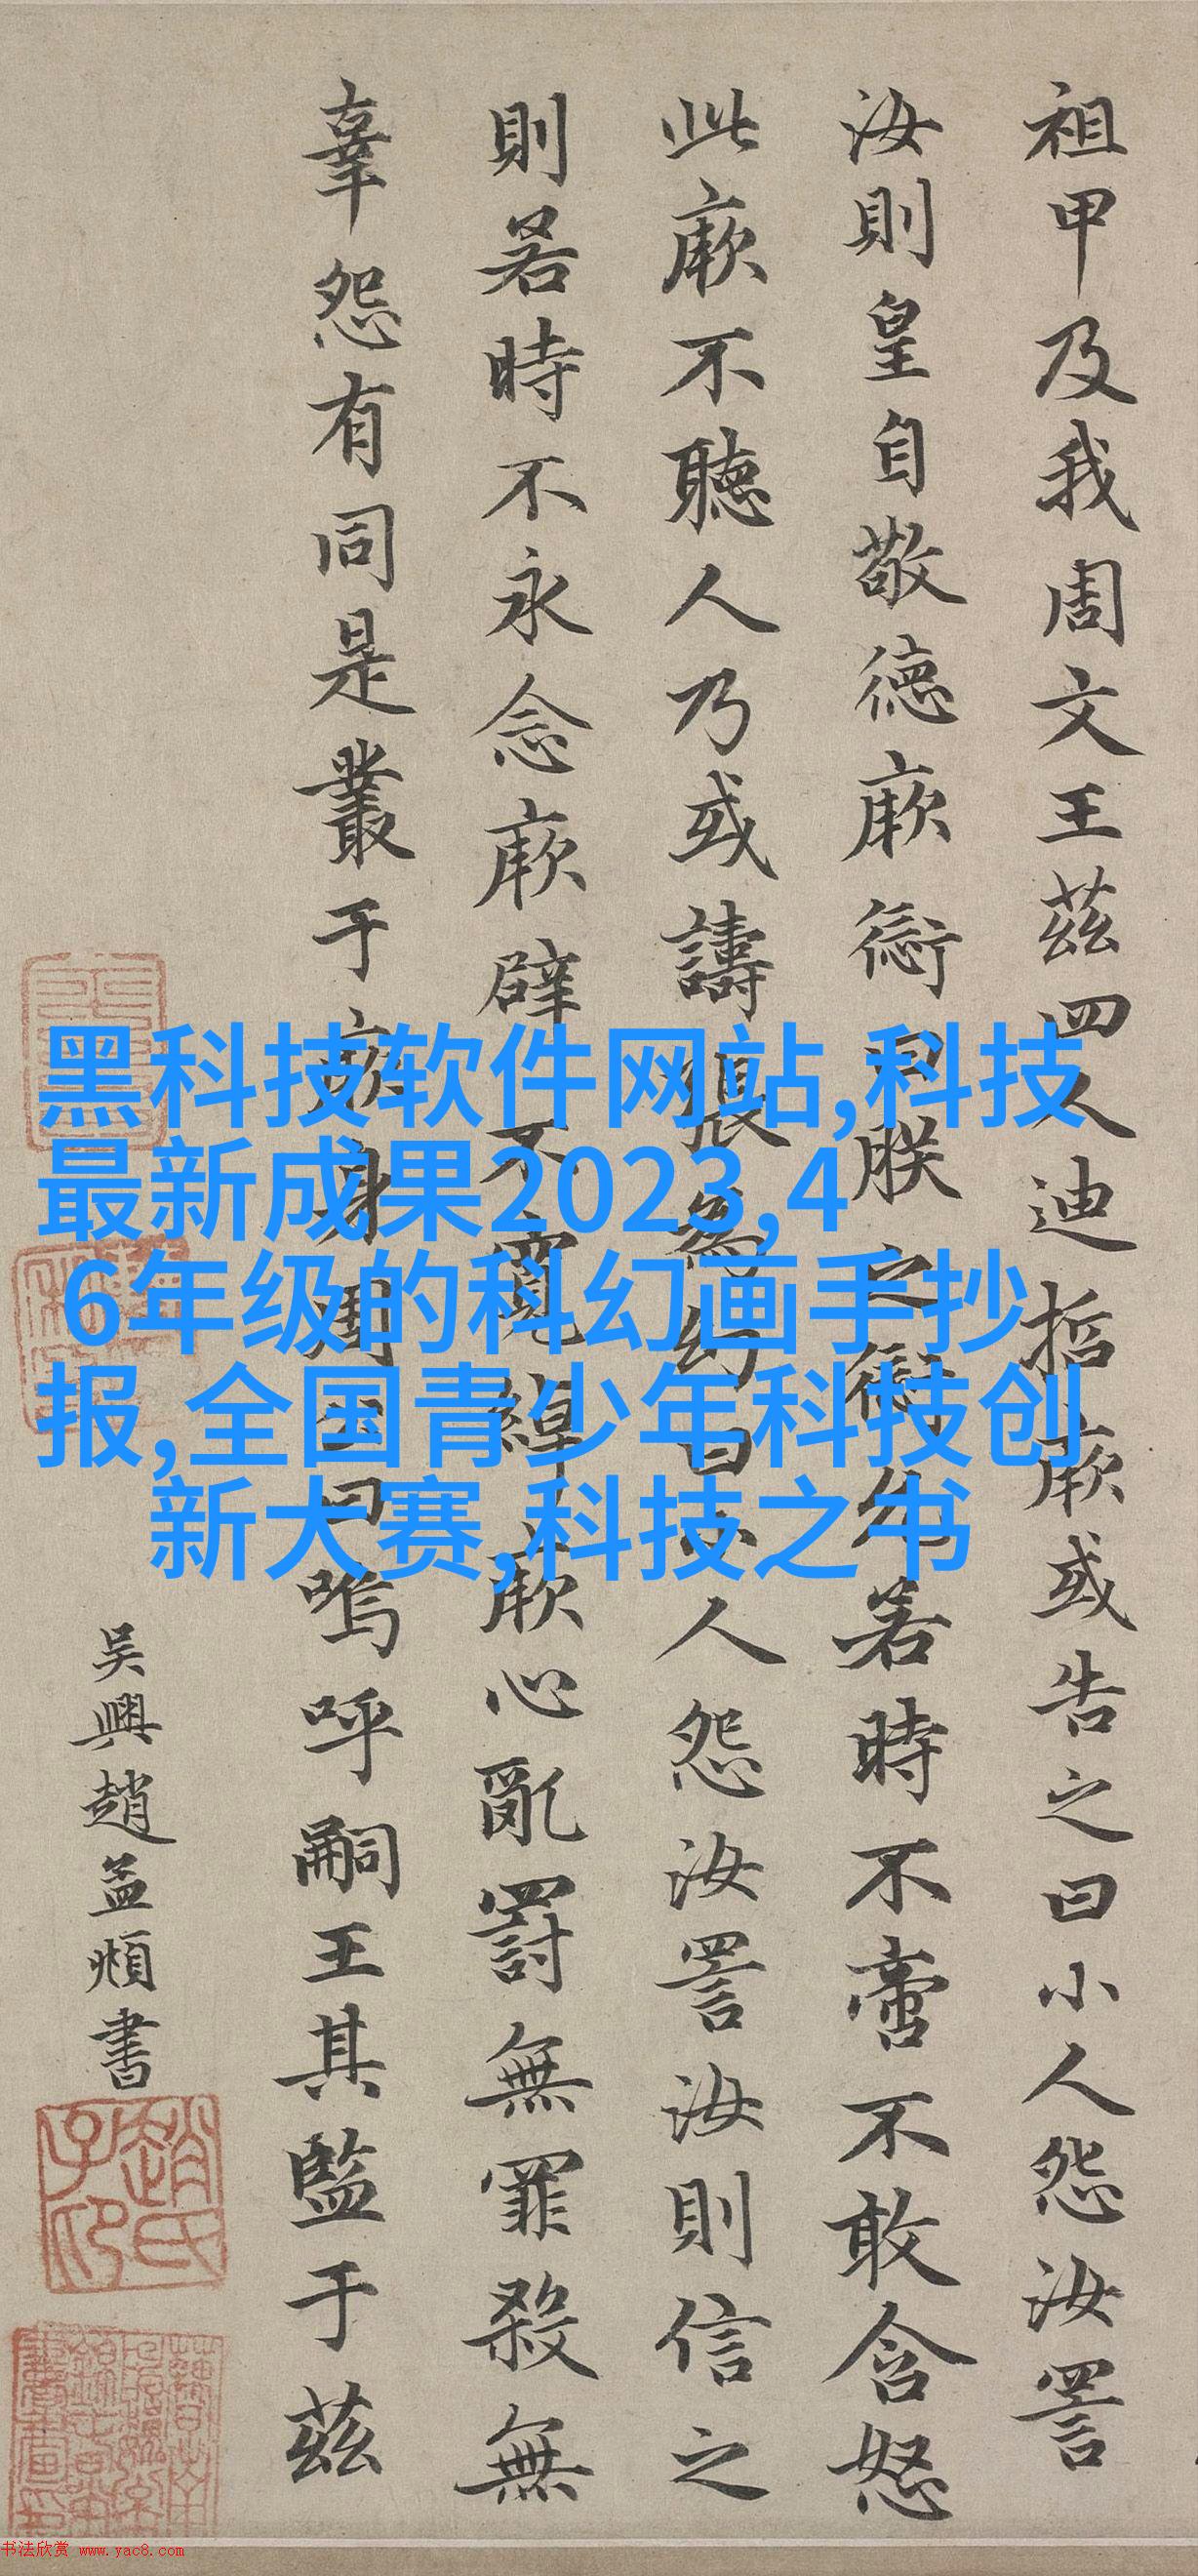 祖甲及我周文王茲四人迪哲厥或告之曰小人怨汝詈
汝則皇自敬德厥愆曰朕之愆允若時不啻不敢含怒
此厥不聽人乃或譸張為幻曰小人怨汝詈汝則信之
則若時不永念厥辟不寬綽厥心亂罰無罪殺無
辜怨有同是叢于厥身周公曰嗚呼嗣王其監于茲
吳興趙孟頫書
趙氏子昂
黑科技软件网站,科技
最新成果2023,4
6年级的科幻画手抄
报,全国青少年科技创
新大赛,科技之书
书法欣赏 www.yac8.com